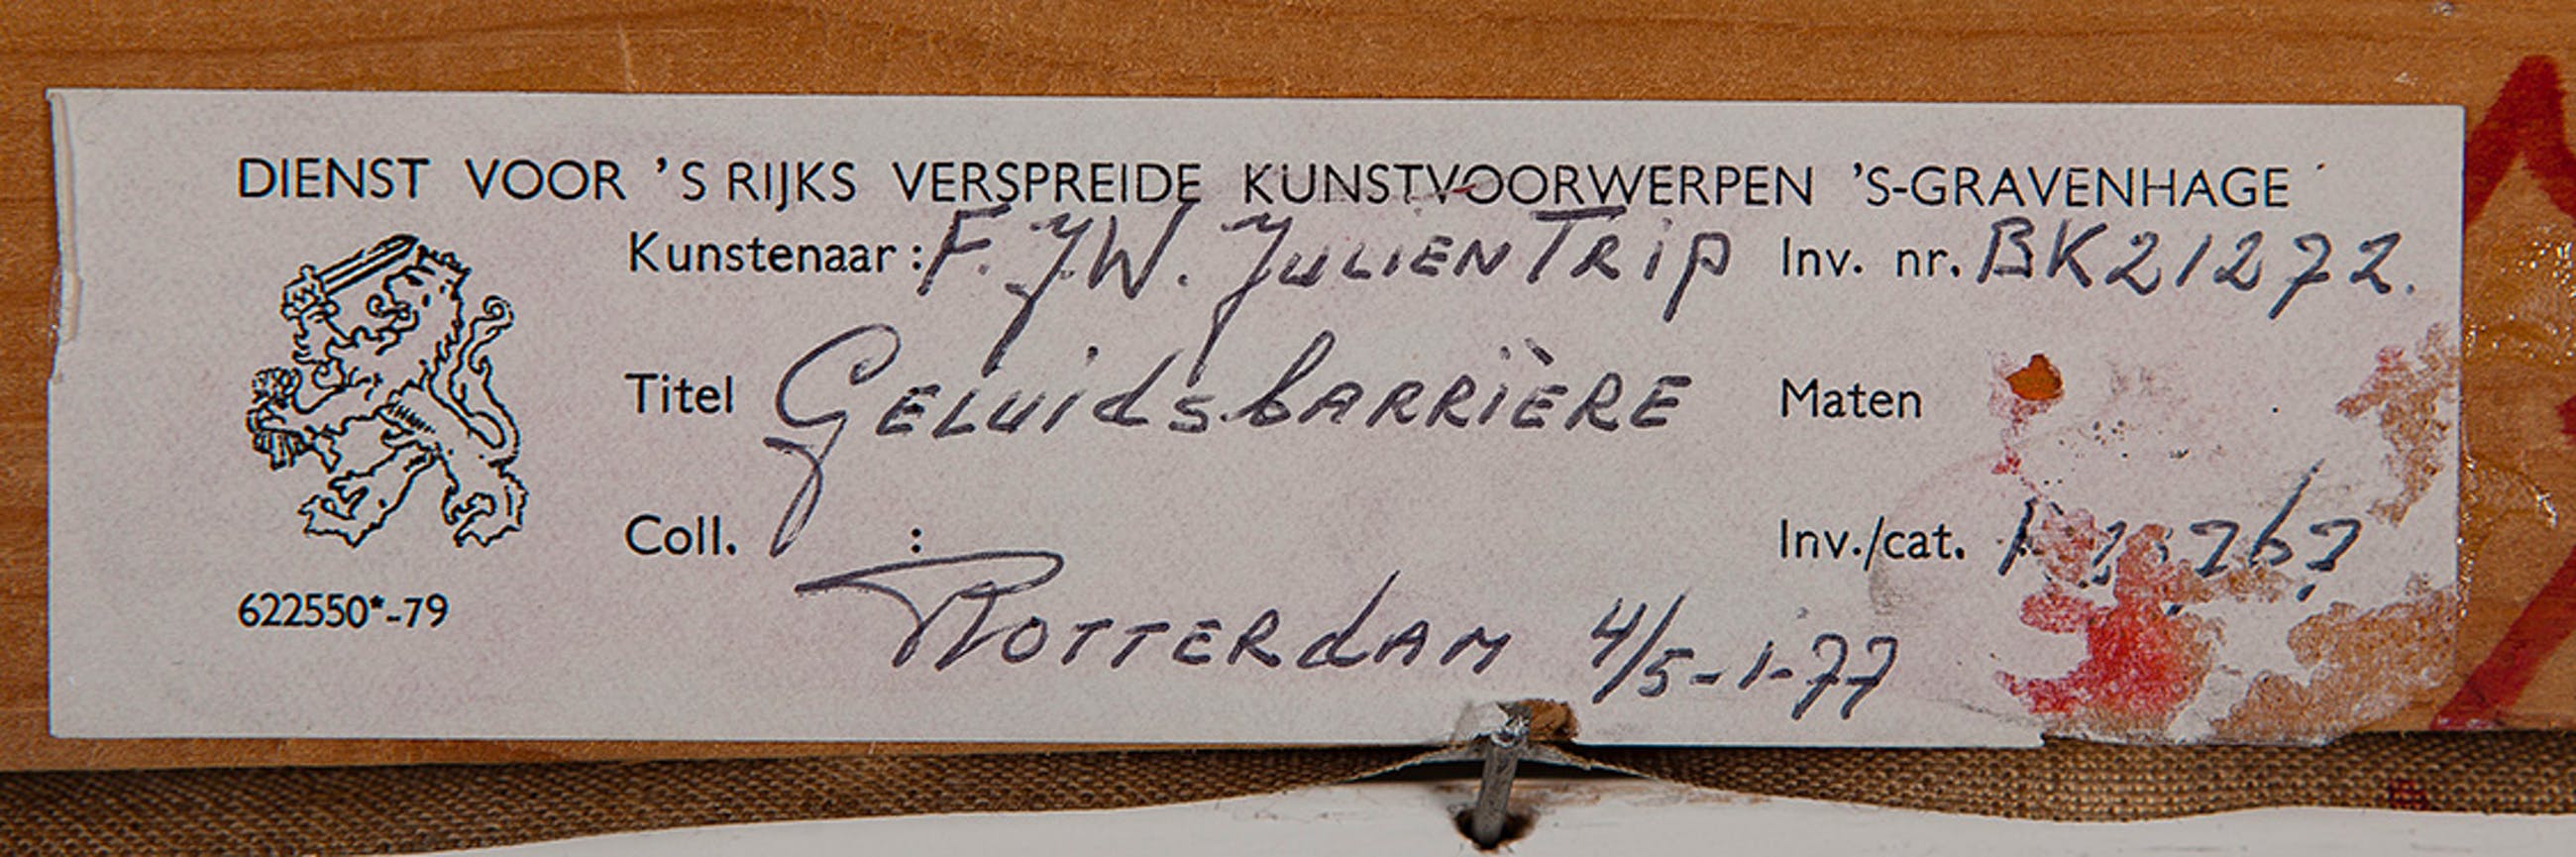 DIENST VOOR 'S RIJKS VERSPREIDE KUNSTVOORWERPEN 'S-GRAVENHAGE
Kunstenaar: F. JW. JULIEN TRIP Inv. nr. BK21272.
Titel GELUIDSBARRIÈRE Maten
Coll. : Inv./cat.
ROTTERDAM 4/5-1-77
622550*-79